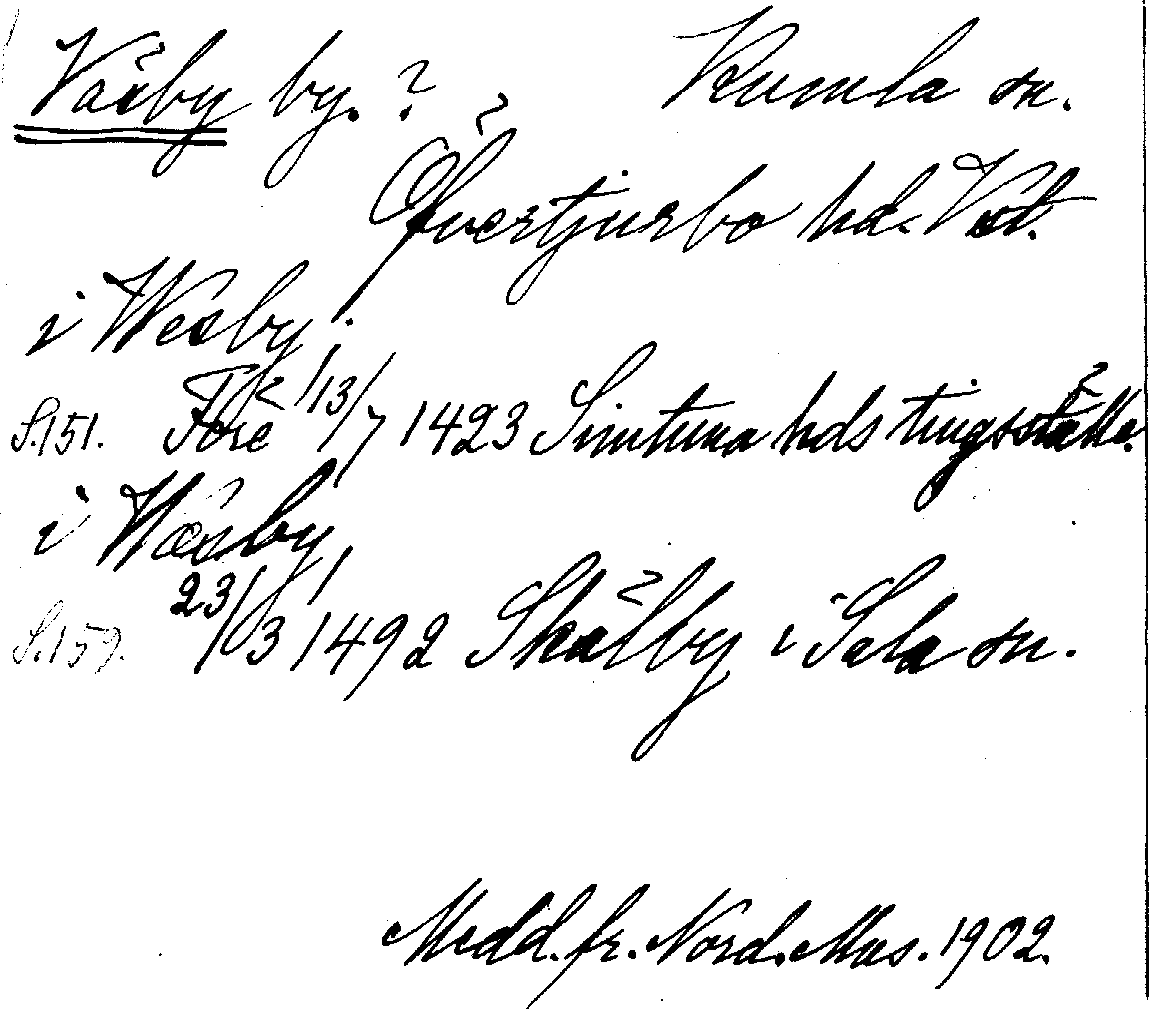 Väsby by. ? Kumla sn.
Öfvertjurbo hd. Vstl.
i Wesby.
S.151. Före 13/7 1423 Simtuna hds tingsställe.
i Wæsby,
S.159. 23/3 1492 Skälby i Sala sn.
Medd. fr. Nord. Mus. 1902.